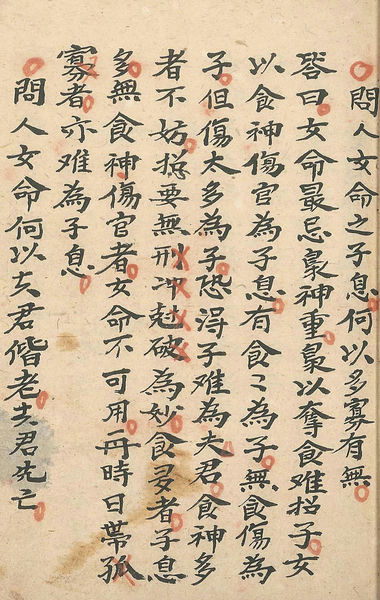 問人女命之子息何以多寡有無
答曰女命最忌梟神重梟以奪食难招子女
以食神傷官為子息有食〻為子無食傷為
子但傷太多為子恐淂子难為夫君食神多
者不妨捴要無刑冲尅破為妙食多者子息
多無食神傷官者女命不可用再時日帶孤
寡者亦难為子息
問人女命何以夫君偕老夫君先亡